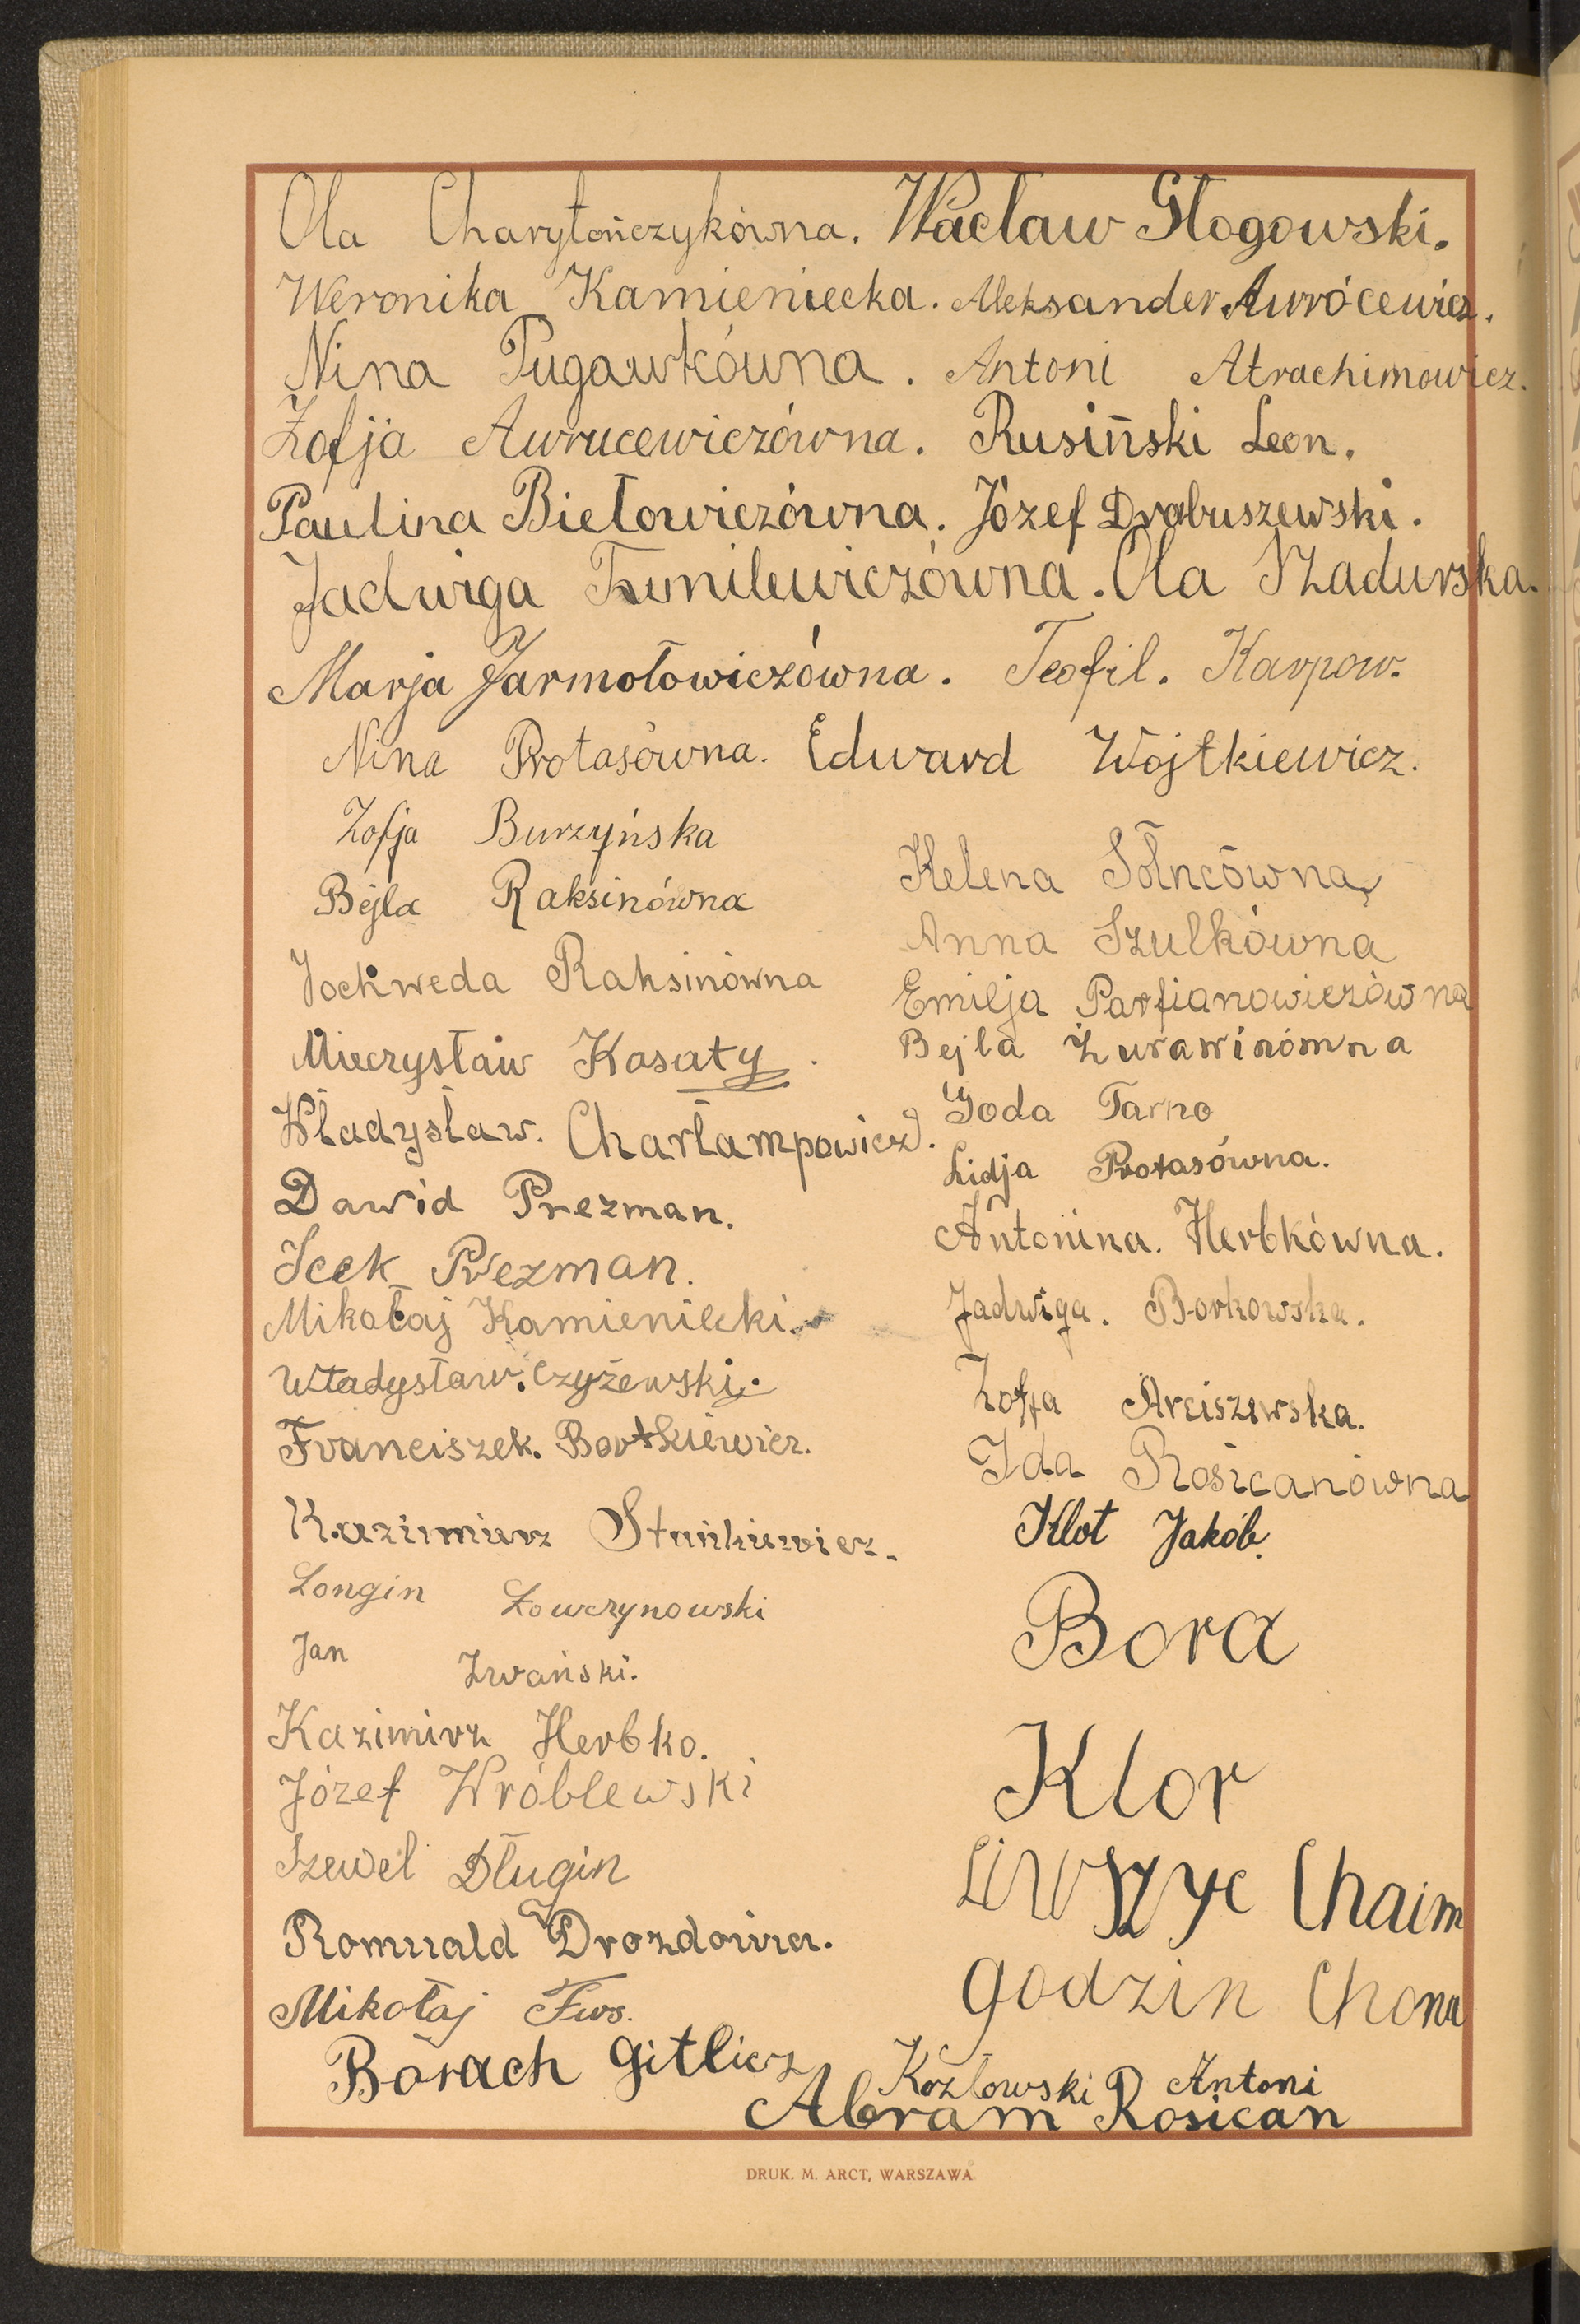 Ola Charytończykówna. Wacław Głogowski.
Weronika Kamieniecka. Aleksander Awrócewicz.
Nina Pugawkówna. Antoni Atrachimowicz.
Zofja Awrucewiczówna. Rusiński Leon.
Paulina Biełowiczówna. Józef Drabuszewski.
Jadwiga Tumilewiczówna. Ola Szadurska.
Marja Jarmołowiczówna. Teofil. Karpow.
Nina Protasówna. Edward Wojtkiewicz.
Zofja Burzyńska
Bejla Raksinówna
Jochweda Raksinówna
Mieczysław Kosaty
Władysław. Charłampowicz.
Dawid Prezman.
Icek Prezman.
Mikołaj Kamieniecki.
Władysław. Czyżewski.
Franciszek. Bortkiewicz.
Kazimierz Stankiewicz.
Longin Łowczynowski
Jan Zwański.
Kazimirz Herbko.
Józef Wróblewski
Szewel Długin
Romuald Drozdowicz.
Mikołaj Fws.
Borach Gitlicz
Helena Sołncówna
Anna Szulkówna
Emilja Parfianowiczówna
Bejla Żurawinówna
Joda Tarno
Lidja Protasówna.
Antonina. Herbkówna.
Jadwiga. Borkowska.
Zofja Arciszewska.
Ida Rosicanówna
Klot Jakób.
Bora
Klor
Liwszyc Chaim
Godzin Chona
Kozłowski Antoni
Abram Rosican
DRUK. M. ARCT, WARSZAWA